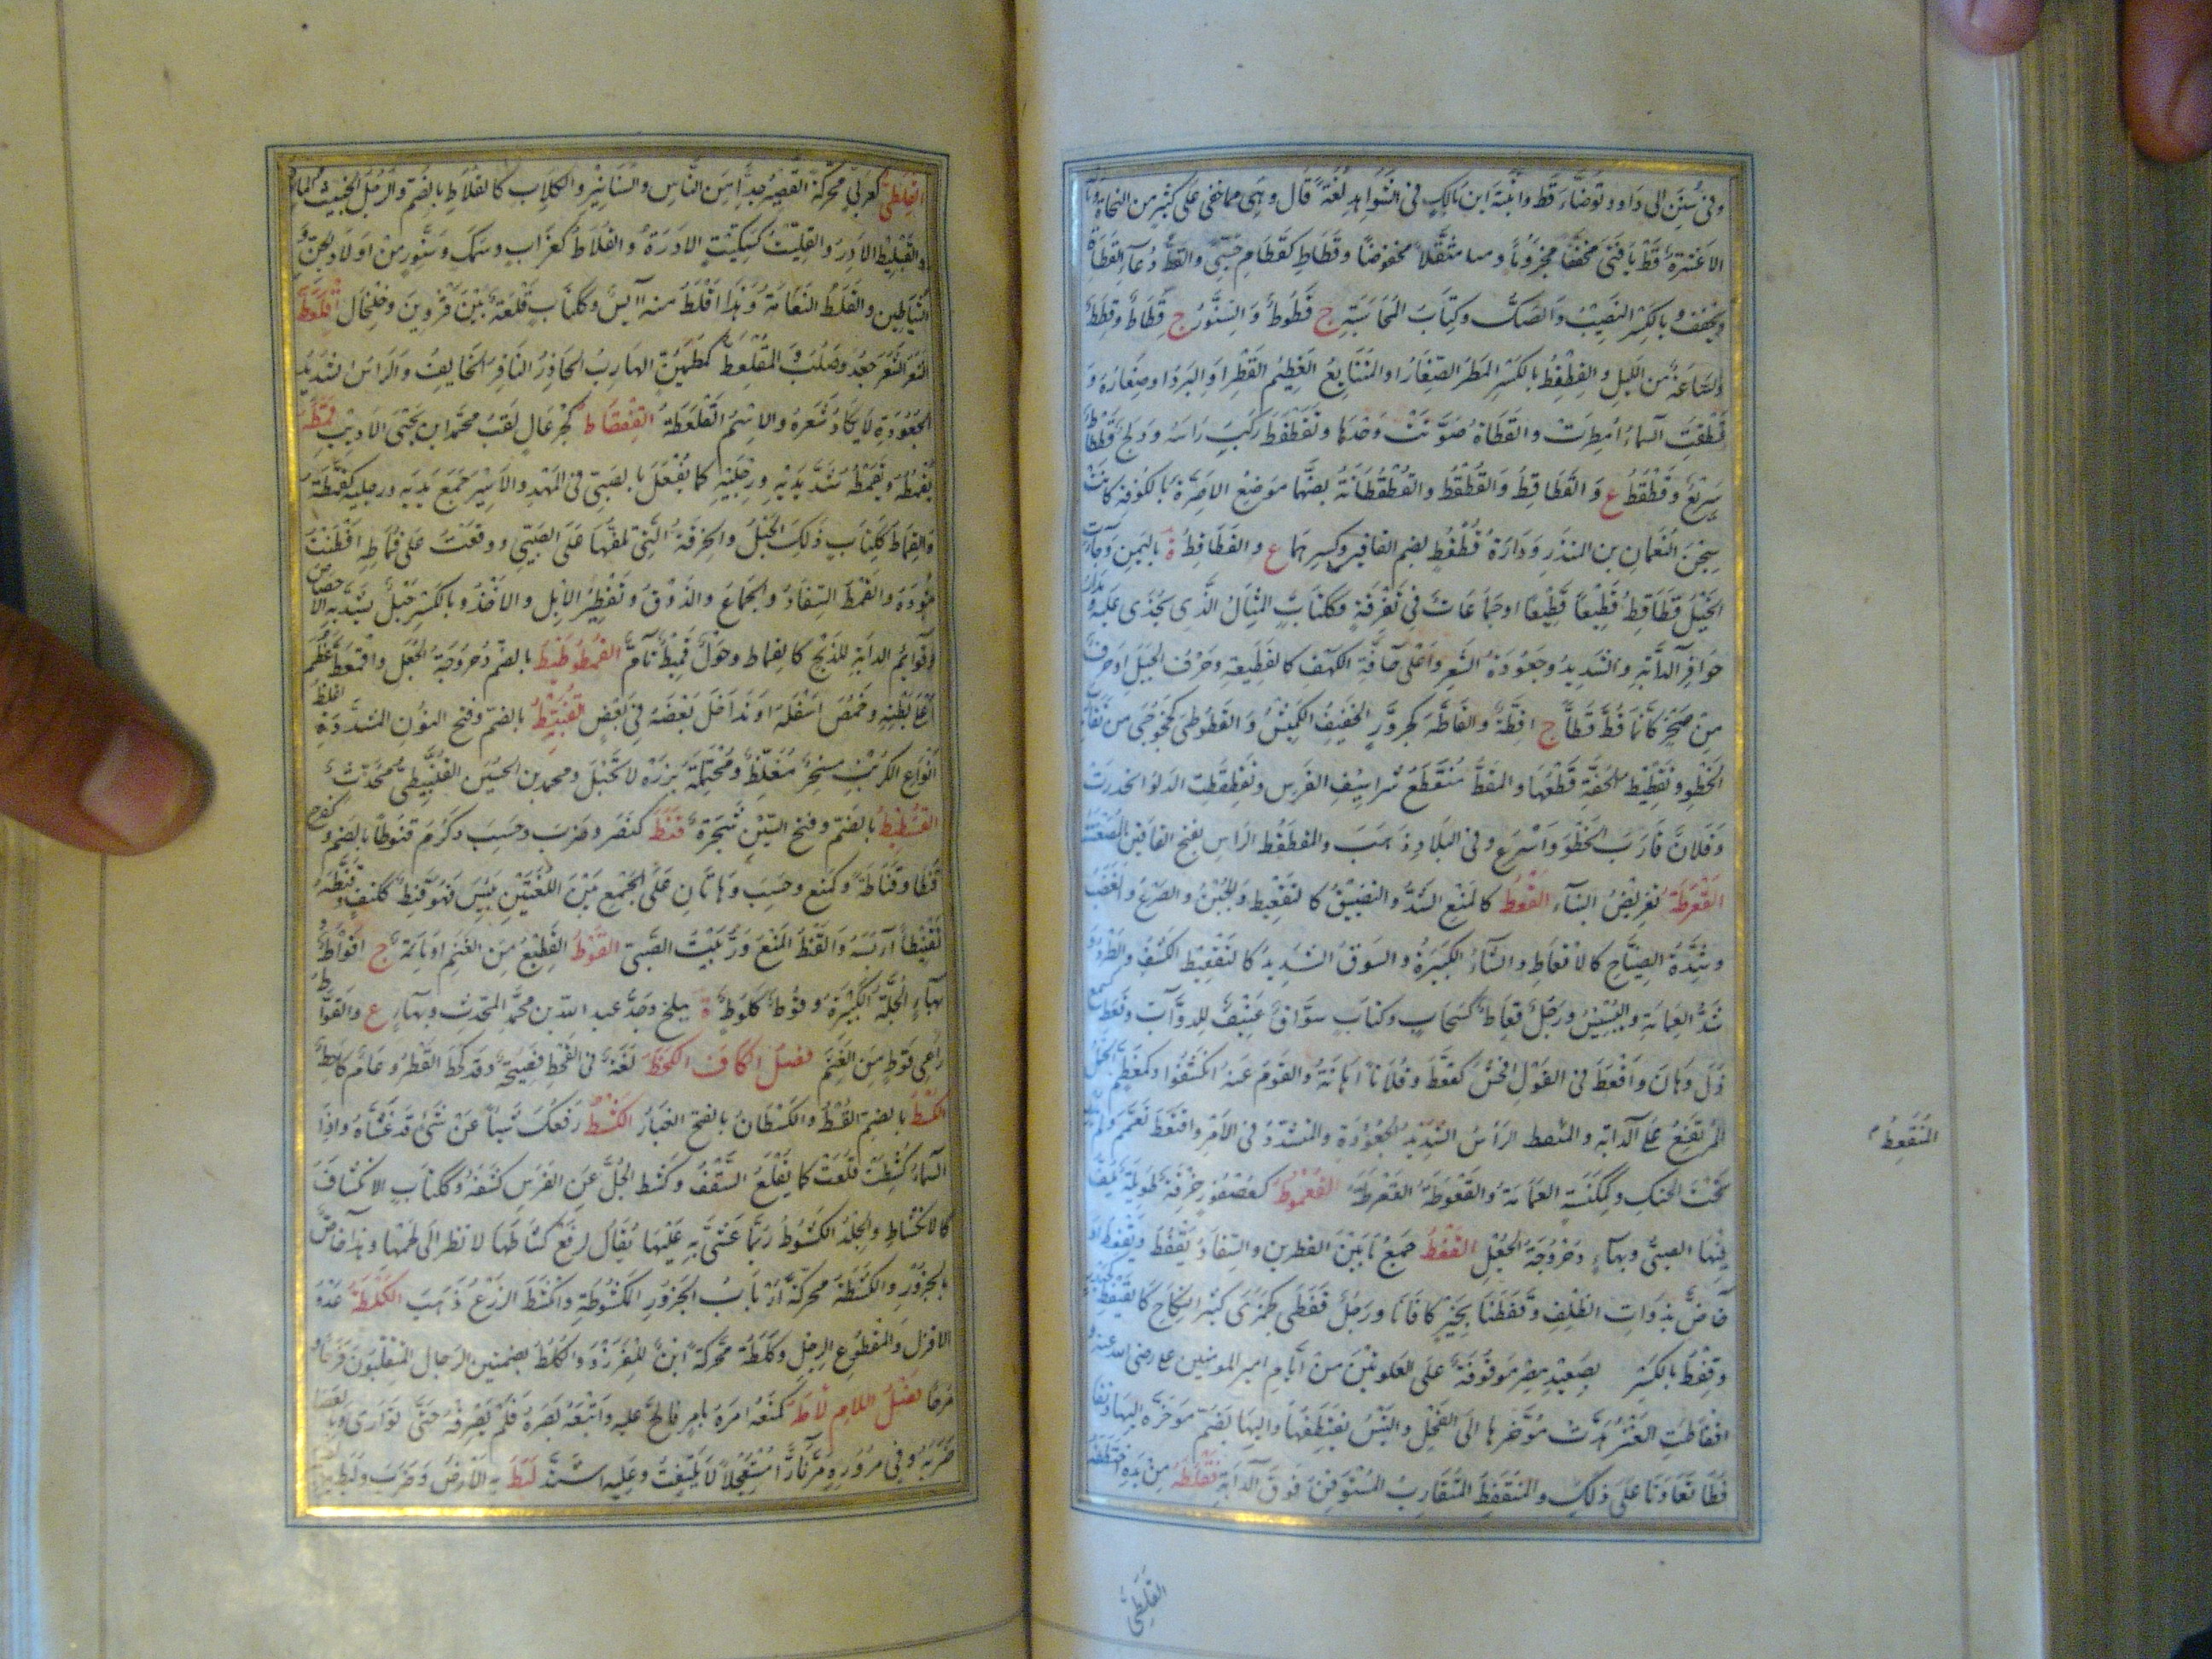 وفى سنن ابى داود توضأ قط واثبته ابن مالك فى الشواهد لغة قال وهى مما خفى على كثير من النحاة وما
الا عشرة قط يا فتى مخففا مجزوما ومثقلا مخفوضا وقطاط كقطام حسبى والقط دعاء القطاة
ويخفف وبالكسر النصيب والصك وكتاب المحاسبة ج قطوط والسنور ج قطاط وقططة
والساعة من الليل والقطقط بالكسر المطر الصغار او المتتابع العظيم القطر او البرد او صغاره و
قطقطت السماء امطرت والقطاة صوتت وحدها وتقطقط ركب راسه ودلج قطقاط
سريع وقطقط ع والقطاقط والقطقط والقطقطانة بضمها موضع الاصرة بالكوفة كانت
سجن النعمان بن المنذر ودارة قطقط بضم القافين وكسرهما ع والقطاقط ة باليمن وجاءت
الخيل قطاقط قطيعا قطيعا او جماعات فى تفرقة وككتاب المثال الذى يحذى عليه ومدار
حوافر الدابة والشديد وجعودة الشعر واعلى حافة الكهف كالقطيعة وحرف الجبل او حرف
من صخر كانما قط قطا ج اقطة والقاطة كجرور الخفيف الكميش والقطوطى كخجوجى من يقارب
الخطو وتقطيط الحقة قطعها والمقط منقطع شراسيف الفرس وتقطقطت الدلو انحدرت
وفلان قارب الخطو واسرع وفى البلاد ذهب والمقطقط الراس بفتح القافين المصعنب
القعرطة تقويض البناء القعط كالمنع الشد والتضييق كالتقعيط والجبن والصرع والغضب
وشدة الصياح كالاقعاط والشاء الكثيرة والسوق الشديد كالتقعيط الكشف والطرد و
شد العمامة واليبس ورجل قعاط كسحاب وكتاب سواق عنيف للدواب وقعط كسمع
ذل وهان واقعط فى القول افحش كقعط وفلانا اهانه والقوم عنه انكشفوا وكمعظم الحمل
المرتفع على الدابة والمتقعط الراس الشديد الجعودة والمتشدد فى الامر واقتعط تعمم ولم يدر
تحت الحنك وكمكنسة العمامة والقعوطة القعرطة القعموط كعصفور خرقة طويلة يلف
فيها الصبى وبهاء دحروجة الجعل القفط جمع ما بين القطرين والسفاد يقفط ويقفط او
خاص بذوات الظلف وقفطنا بخير كافانا ورجل قفطى كجمزى كثير النكاح كالقيفط كحيدر
وقفط بالكسر بصعيد مصر موقوفة على العلويين من ايام امير المومنين على رضى الله عنه و
اقفاطت العنز مدت مؤخرها الى الفحل والتيس يقتفطها واليها يضم موخره اليها وتقا
فطا تعاونا على ذلك والمتقفط المتقارب المستوفز فوق الدابة قفلطه من يده اختطفه
المتقعط
القلطى
القلطى كعربى محركة القصير جدا من الناس والسنانير والكلاب كالقلاط بالضم والرجل الخبيث المارد
والقيليط الادر والقليط كسكيت الادرة والقلاط كغراب وسمك وسنور من اولاد الجن و
الشياطين والقلط الدمامة وهذا اقلط منه آيس وككتاب قلعة بين قزوين وخلخال اقلعط
الشعر جعد وصلب والمقلعط كمطمئن الهارب الحاذر النافر الخايف والراس الشديد
الجعودة لا يكاد شعره والاسم القلعطة القلفاط كجرعال لقب محمد ابن يحيى الاديب قمطه
يقمطه ويقمطه شد يديه ورجليه كما يفعل بالصبى فى المهد والاسير جمع يديه ورجليه كقمطه
والقماط ككتاب ذلك الحبل والخرقة التى تلفها على الصبى ووقعت على قماطه افطنت
بوده والقمط السفاد والجماع والذوق وتقطير الابل والاخذ وبالكسر حبل يشد به الاخصاص
وقوايم الدابة للذبح كالقماط وحول قميط تام القمطوط بالضم دحروجة الجعل واقمعط عظم
اعلا بطنه وخمص اسفله او تداخل بعضه فى بعض القنبيط بالضم وفتح النون المشددة اغلظ
انواع الكرنب مبخر مغلظ ومحتملة بزره لا تحبل ومحمد بن الحسين القنبيطى محدث
القنسطيط بالضم وفتح السين شجرة قنط كنصر وضرب وحسب وكرم قنوطا بالضم وكفرح
قنطا وقناطة وكمنع وحسب وهاتان على الجمع بين اللغتين يئس فهو قنط ككتف وقنطه
تقنيطا آيسه والقنط المنع وزبيب الصبى القوط القطيع من الغنم او مائة ج اقواط و
بهاء الجلة الكبيرة وقوط كلوط ة ببلخ وجد عبد الله بن محمد المحدث وبهاء ع والقواط
راعى قوط من الغنم فصل الكاف الكحط لغة فى القحط فصيحة وقد كحط القطر وعام كاحط
الكسط بالضم القسط والكسطان بالفتح الغبار الكشط رفعك شيئا عن شئ قد غشاه واذا
السماء كشطت قلعت كما يقلع السقف وكشط الجل عن الفرس كشفه وككتاب الانكشاف
كالانكشاط والجلد المكشوط ربما غشى به عليها يقال ارفع كشاطها لانظر الى لحمها وهذا خاص
بالجزور والكشطة محركة ارباب الجزور المكشوطة وانكشط الزرع ذهب الكلطة عدو
الاقزل والمقطوع الرجل وكلطة محركة ابن للفرزدق والكلط بضمتين الرجال المتقلبون فرحا و
مرحا فصل اللام لأطه كمنعه امره بامر فالح عليه واتبعه بصره فلم يصرفه حتى توارى وبالعصا
ضربه وفى مروره مر مارا مستعجلا لا يلتفت وعليه اشتد لبط به الارض وضرب ولبط به